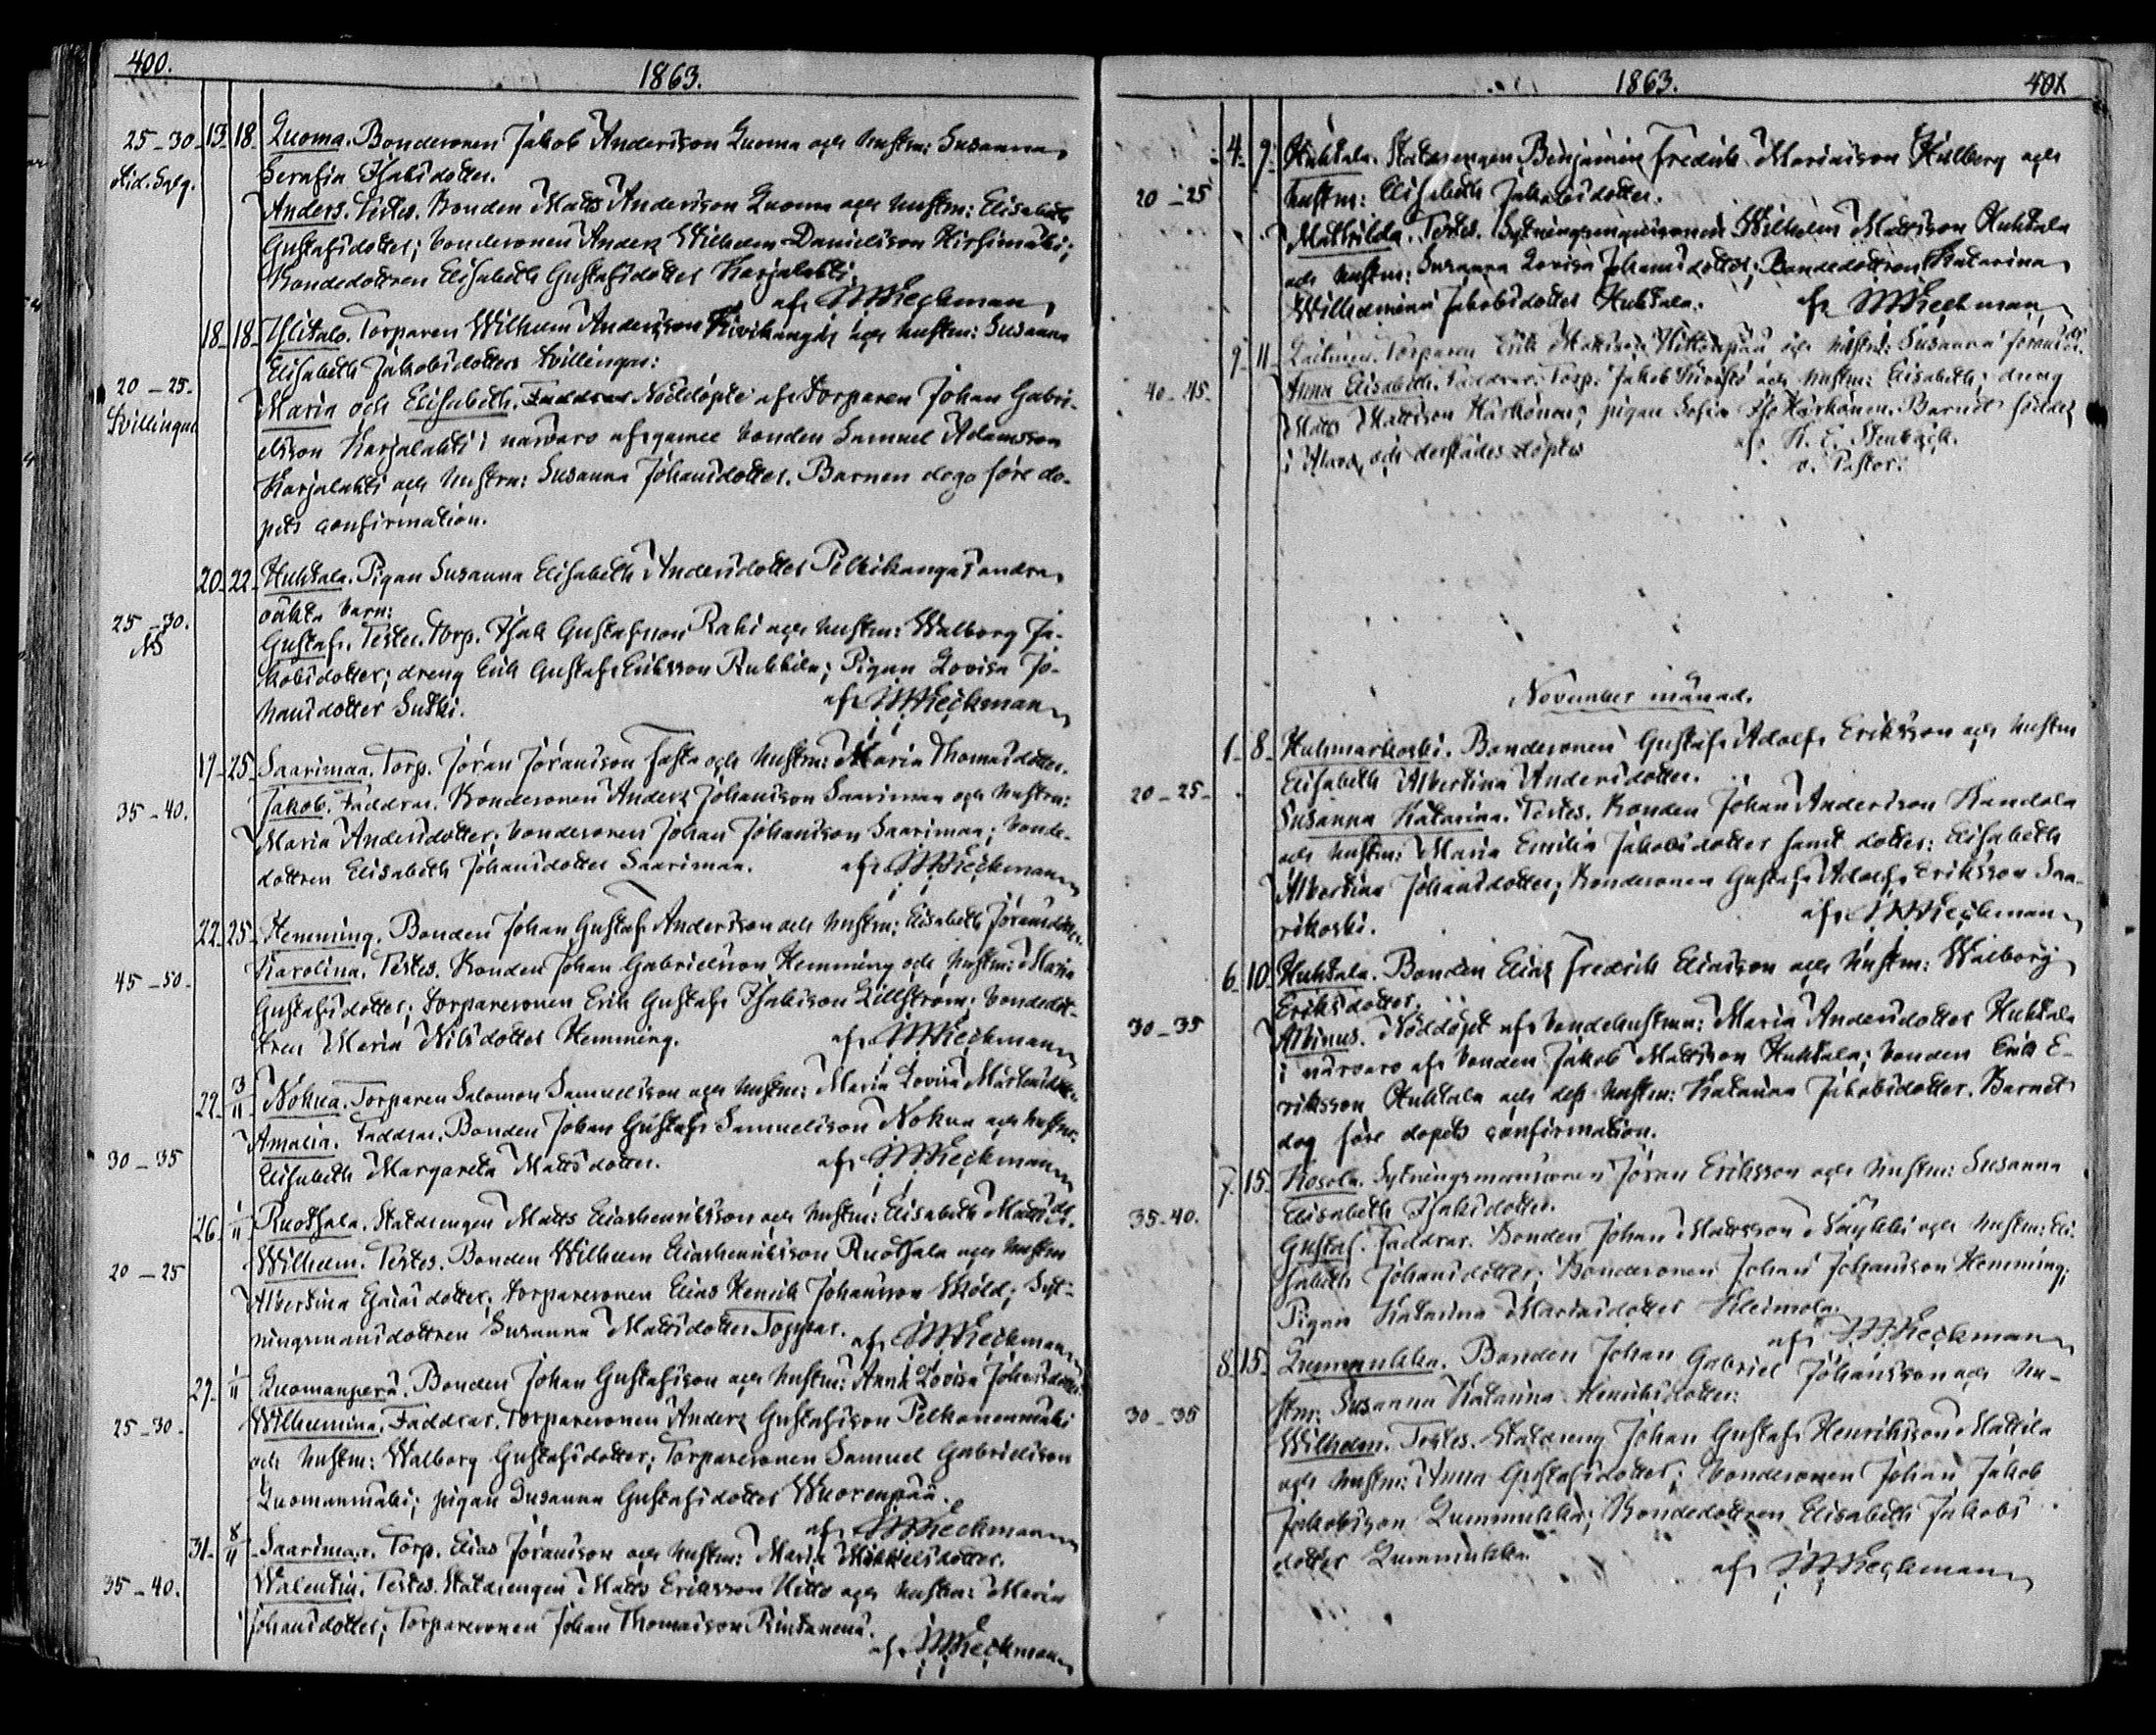 400.
1863.
25-30 13 18 Luoma. Bondesonen Jakob Andersson Luoma och hustru: Susanna
Serafia Isaksdotter.
Anders. Testes. Bonden Matts Andersson Luoma och hustru: Elisabeth
Gustafsdotter; bondesonen Anders Wilhelm Danielsson Hirsimäki;
Bondedottren Elisabeth Gustafsdotter Karjalahti.
af
18 18 Ylitalo. Torparen Wilhelm Andersson Kivikangas och hustru: Susanna
Elisabeth Jakobsdotters tvillingar:
20-25. Tvillingar
Maria och Elisabeth. Faddrar Nöddöpte af torparen Johan Gabri-
elsson Karjalahti i närvaro af bonden Samuel Adamsson
Karjalahti och hustru: Susanna Johansdotter. Barnen dogo före do-
pets confirmation.
20 22 Huhtala. Pigan Susanna Elisabeth Andersdotter Pelkikangas andra
oäkta barn:
25-30.
Gustaf. Testes. Torp. Isak Gustafsson Rahi och hustru: Walborg Ja-
kobsdotter; dreng Erik Gustaf Eriksson Ruhkila; Pigan Lovisa Jo-
hansdotter Sutki.
af
19 25 Saarimaa. Torp. Jöran Jöransson Fasta och hustru: Maria Thomasdotter.
35-40. Jakob. Faddrar. Bondesonen Anders Johansson Saarimaa och hustru:
Maria Andersdotter; bondesonen Johan Johansson Saarimaa; bonde-
dottren Elisabeth Johansdotter Saarimaa. af
22 25 Hemming. Bonden Johan Gustaf Andersson och hustru: Elisabeth Jöransdotter.
45-50 Karolina. Testes. Bonden Johan Gabrielsson Hemming och hustru: Maria
Gustafsdotter; torparesonen Erik Gustaf Isaksson Lillström; bondedot-
tren Maria Nilsdotter Hemming. af
29 3/11 Nokua. Torparen Salomon Samuelsson och hustru: Maria Lovisa
30-35 Amalia. Faddrar. Bonden Johan Gustaf Samuelsson Nokua och hustru:
Elisabeth Margareta Mattsdotter. af
26 1/11 Ruotsala. Statdrengen Matts Eliashenriksson och hustru: Elisabeth Mattsdr.
20-25 Wilhelm. Testes. Bonden Wilhelm Eliashenriksson Ruotsala och hustru
Albertina Esaiasdotter; torparesonen Elias Henrik Johansson Sköld; Syt-
ningsmansdottren Susanna Mattsdotter Toppar. af
29 1/11 Luomanperä. Bonden Johan Gustafsson och hustru: Anna Lovisa Johansdotter
25-30. Wilhelmina. Faddrar. Torparesonen Anders Gustafsson Pelkonenmäki
och hustru: Walborg Gustafsdotter; Torparesonen Samuel Gabrielsson
Luomanmäki; pigan Susanna Gustafsdotter Wuorenpää.
af
31 8/11 Saarimaa. Torp. Elias Jöransson och hustru: Maria Mikkelsdotter.
35-40. Walentin. Testes. Statdrengen Matts Eriksson Hitto och hustru: Maria
Johansdotter; Torparesonen Johan Thomasson Rintanen.
af
1863.
401
4 9 Huhtala. Statdrengen Benjamin Fredrik Mariasson Hallberg och
20-25 hustru: Elisabeth Jakobsdotter.
Mathilda. Testes. Sytningsmanssonen Wilhelm Mattsson Huhtala
och hustru: Susanna Lovisa Johansdotter; Bondedottren Katarina
Wilhelmina Jakobsdotter Huhtala. af
9 11 Torparen Erik Mattsson och hustru: Susanna
40-45 Anna Elisabeth. Faddrar: Torp. Jakob och hustru: Elisabeth; dreng
Matts Mattsson Härkönen; pigan Sofia Härkönen. Barnet föddes
i Alavo och derstädes döptes af K. E. Stenbäck.
v. Pastor.
November månad.
1 8 Huhmarkoski. Bondesonen Gustaf Adolf Eriksson och hustru
20-25 Elisabeth Albertina Andersdotter.
Susanna Katarina. Testes. Bonden Johan Andersson Kandola
och hustru: Maria Emilia Jakobsdotter samt dotter: Elisabeth
Albertina Johansdotter; Bondesonen Gustaf Adolf Eriksson Saa-
rikoski. af
6 10 Huhtala. Bonden Elias Fredrik Eliasson och hustru: Walborg
Eriksdotter.
30-35 Albinus. Nöddöpt af bondehustrun: Maria Andersdotter Huhtala
i närvaro af bonden Jakob Mattsson Huhtala; bonden Erik E-
riksson Huhtala och dess hustru: Katarina Jakobsdotter. Barnet
dog före dopets confirmation.
7 15 Kosola. Sytningsmanssonen Jöran Eriksson och hustru: Susanna
35-40. Elisabeth Isaksdotter.
Gustaf. Faddrar. Bonden Johan Mattsson Näykki och hustru: Eli-
sabeth Johansdotter; Bondesonen Johan Johansson Hemming;
Pigan Katarina Mariasdotter Kleimola.
af
8 15 Lummukka. Bonden Johan Gabriel Johansson och hu-
30-35 stru: Susanna Katarina Henriksdotter:
Wilhelm. Testes. Statdreng Johan Gustaf Henriksson Mattila
och hustru: Anna Gustafsdotter; bondesonen Johan Jakob
Jakobsson Lummukka; Bondedottren Elisabeth Jakobs
dotter Lummukka.
af